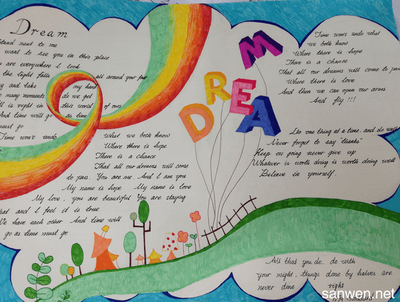 Dream
Stand next to me
want to see you in this place
are everywhere I look
the light falls all around your face
and take my hand
many moments do we get
it is right in this world of ours
And time will go as time
must go
Time won't wonder
What we both know
Where there is hope
There is a chance
That all our dreams will come
to pass You are me And I am you
My name is hope My name is love
My love, you are beautiful You are staying
that and I feel it is true
We have each other And time will
go as time must go
DREAM
Time won't undo what
we both know
Where there is hope
There is a chance
That all our dreams will come to pass
Where there is love
And then we can open our arms
And fly !!!
Do one thing at a time, and do well
Never forget to say "thanks"
Keep on going never give up
Whatever is worth doing is worth doing well
Believe in yourself.
All that you do, do with
your might things done by halves are
never done right
sanwen.net